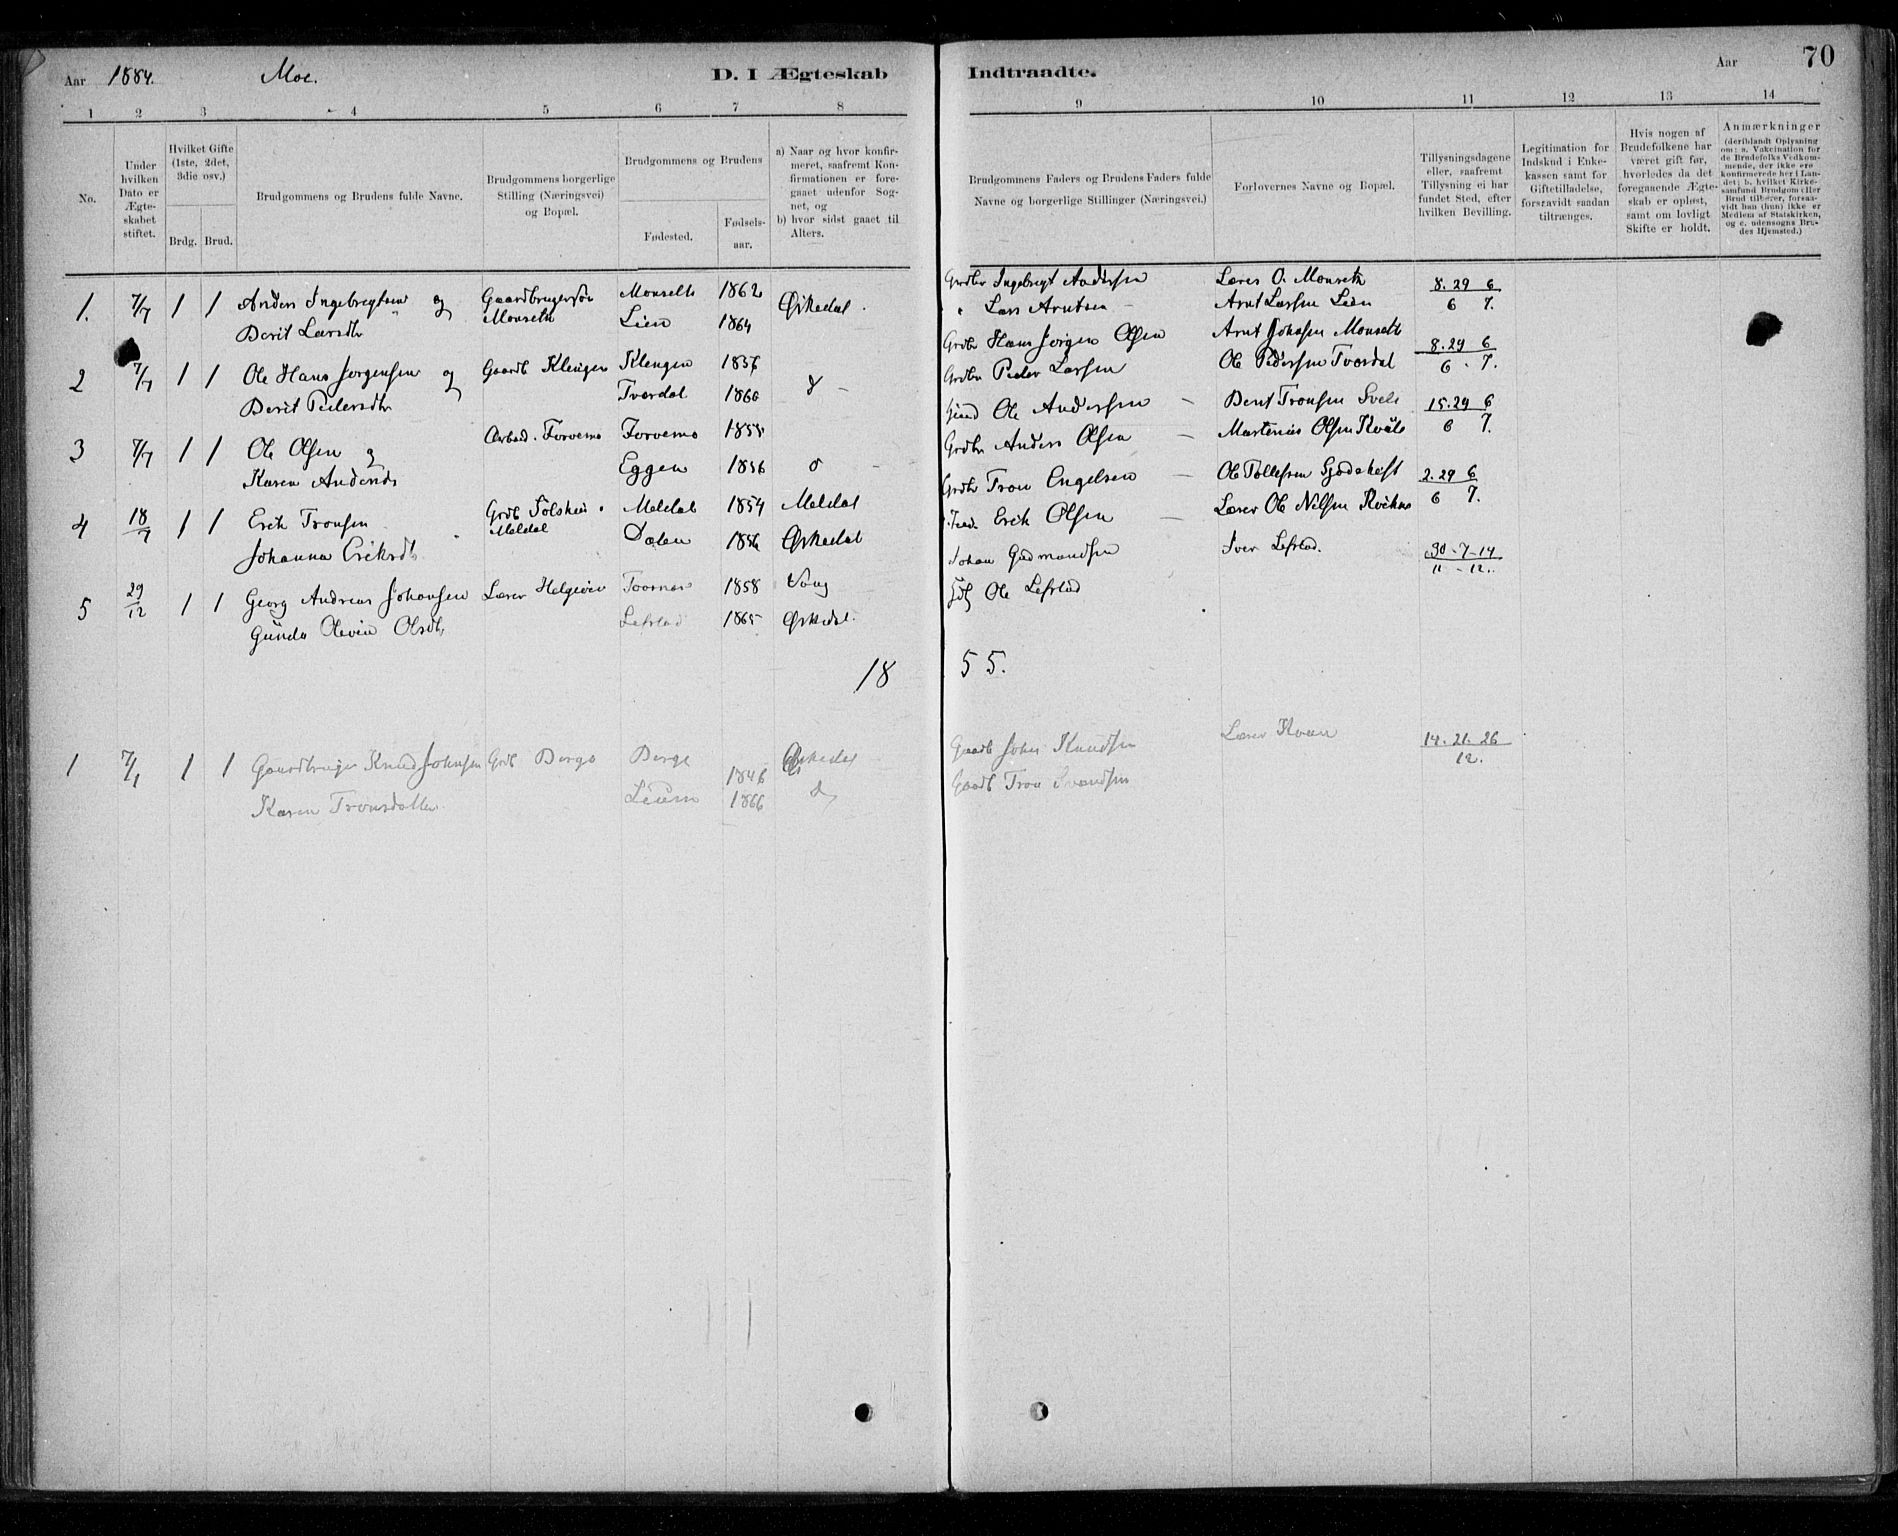 Aar 1884. Moe. D. I Ægteskab Indtraadte. Aar 70
1 2 3 4 5 6 7 8 9 10 11 12 13 14
No.
Under hvilken Dato er Ægteskabet stiftet.
Hvilket Gifte (1ste, 2det, 3die osv.)
Brdg. Brud.
Brudgommens og Brudens fulde Navne.
Brudgommens borgerlige Stilling (Næringsvei) og Bopæl.
Brudgommens og Brudens
Fødested.
Fødselsaar.
a) Naar og hvor konfirmeret, saafremt Konfirmationen er foregaaet udenfor Sognet, og
b) hvor sidst gaaet til Alters.
Brudgommens Faders og Brudens Faders fulde Navne og borgerlige Stillinger (Næringsvei.)
Forlovernes Navne og Bopæl.
Tillysningsdagene eller, saafremt Tillysning ei har fundet Sted, efter hvilken Bevilling.
Legitimation for Indskud i Enkekassen samt for Giftetilladelse, forsaavidt saadan tiltrænges.
Hvis nogen af Brudefolkene har været gift før, hvorledes da det foregaaende Ægteskab er opløst, samt om lovligt Skifte er holdt.
Anmærkninger (deriblandt Oplysning om: a. Vakcination for de Brudefolks Vedkommende, der ikke ere konfirmerede her i Landet; b. hvilket Kirkesamfund Brudgom eller Brud tilhører, forsaavidt han (hun) ikke er Medlem af Statskirken, og c. udensogns Brudes Hjemsted.)
1. 7/7 1 1 Anders Ingebrigtsen og Gaardbrugersøn Monseth 1862 Ørkedal. Grdbr Ingebrigt Andersen Lærer O. Monseth 8. 29 6
Berit Larsdtr Monseth Lien 1864 " Lars Arntsen Arnt Larsen Lien 6 7.
2 7/7 1 1 Ole Hans Jørgensen og Gaardb Klingen Klengen 1856 Grdbr Hans Jørgen Olsen Arnt Johnsen Monseth 8. 29 6
Berit Pedersdtr Tvordal 1860 d - Grdbr Peder Larsen Ole Pedersen Tvordal 6 . 7.
3 7/7 1 1 Ole Olsen og Arbeid. Forvemo Forvemo 1855 Ole Andersen Bent Tronsen 15. 29 6
Karen Andersdtr Eggen 1856 Grdbr Anders Olsen Martenius Olsen 6 7.
4 18/7 1 1 Erik Tronsen Grdb Solskin Meldal 1854 Meldal Grdbr Tron Engelsen Ole Tollefsen 2. 29 6
Johanna Eriksdtr Meldal Dalen 1856 Ørkedal Erik Olsen Lærer Ole Nilsen 6 7.
5 29/12 1 1 Georg Andreas Johansen Lærer 1858 Johan Gudmundsen Iver Lefstad. 30-7-14
Gunda Olevia Olsdtr Lefstad 1865 Ørkedal. Ole Lefstad 11 - 12.
18 55.
1 7/1 1 1 Gaardbruger Knud Johnsen Grdb Berge Berge 1846 Ørkedal Gaardb John Knudsen Lærer Kvam 14. 21. 26
Karen Tronsdatter 1866 d Gaardb Tron 12.